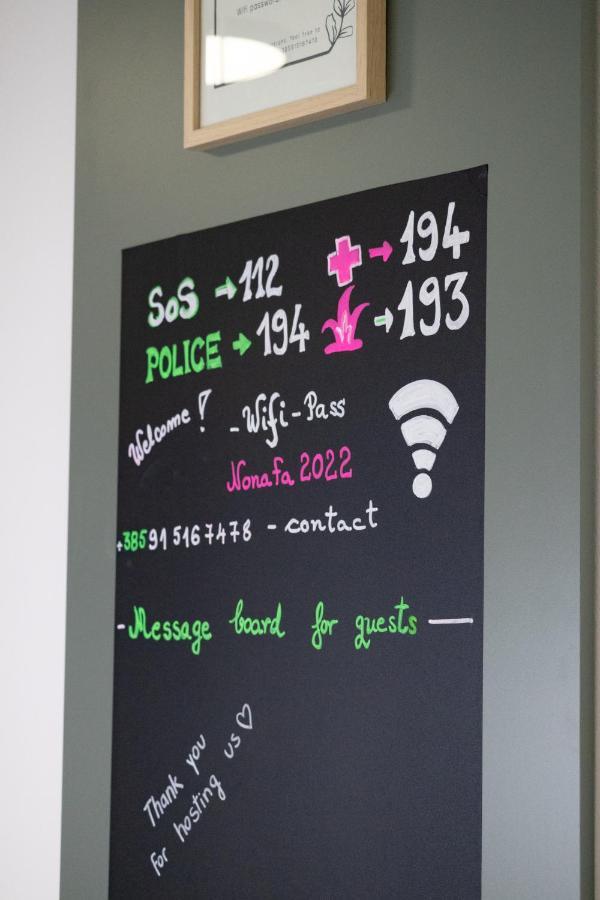 Wifi passwo
feel free to
385915167478
SoS → 112
194
POLICE → 194
→ 193
Welcome!
- Wifi - Pass
Nonafa 2022
+385 91 5167478 - contact
- Message board for guests —
Thank you
for hosting us ♡